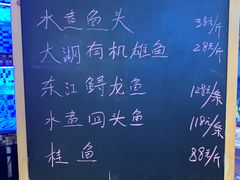 水煮鱼头 38元/斤
大湖有机雄鱼 28元/斤
东江鲟龙鱼 128元/条
水煮回头鱼 118元/条
桂鱼 88元/斤